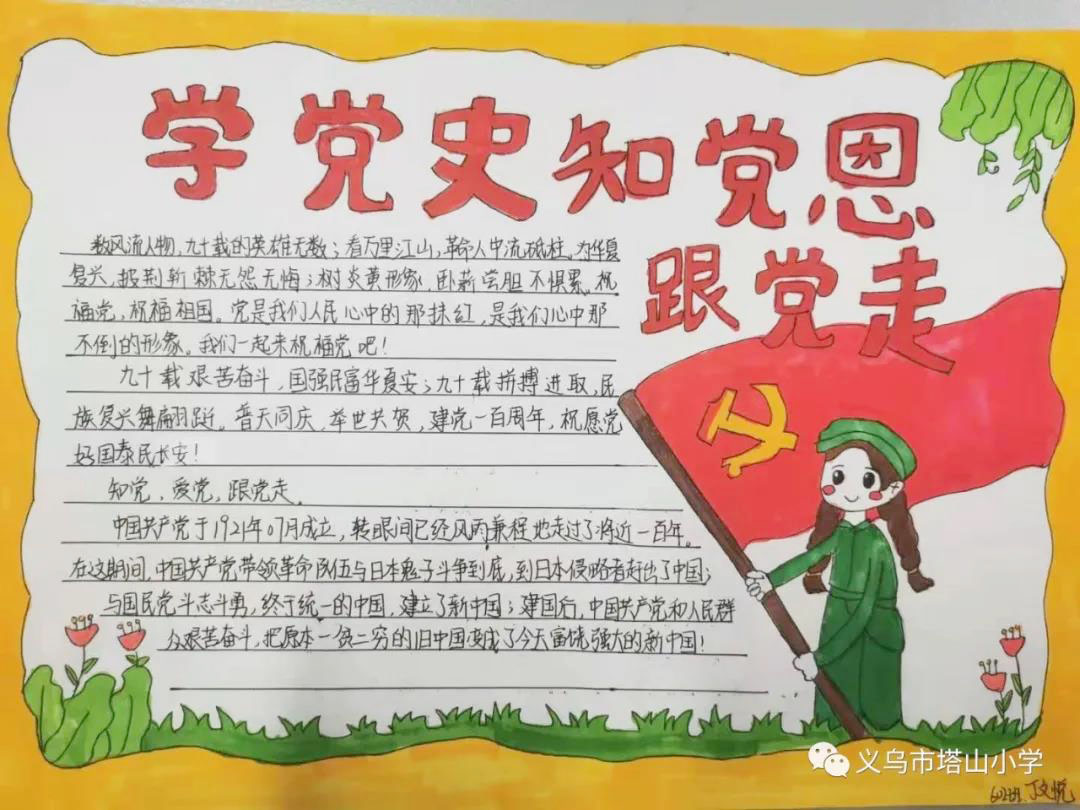 学党史知党恩
跟党走
数风流人物,九十载的英雄无数;看万里江山,革命人中流砥柱。为华夏
复兴,披荆斩棘无怨无悔;树炎黄形象,卧薪尝胆不惧累。祝
福党,祝福祖国。党是我们人民心中的那抹红,是我们心中那
不倒的形象。我们一起来祝福党吧!
九十载艰苦奋斗,国强民富华夏安;九十载拼搏进取,民
族复兴舞翩跹。普天同庆,举世共贺,建党一百周年,祝愿党
好国泰民长安!
知党,爱党,跟党走。
中国共产党于1921年07月成立,转眼间已经风雨兼程地走过了将近一百年。
在这期间,中国共产党带领革命队伍与日本鬼子斗争到底,到日本侵略者赶出了中国;
与国民党斗志斗勇,终于统一的中国,建立了新中国;建国后,中国共产党和人民群
众艰苦奋斗,把原本一贫二穷的旧中国变成了今天富饶强大的新中国!
义乌市塔山小学
602班 丁文悦